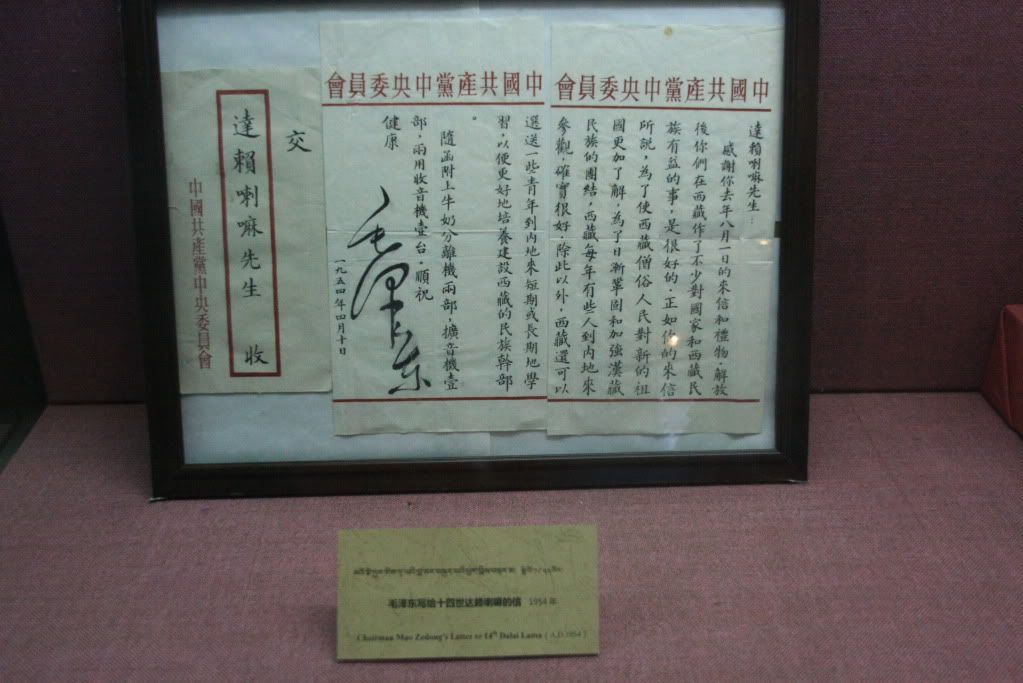 中國共產黨中央委員會
達賴喇嘛先生：
感謝你去年八月一日的來信和禮物。解放
後你們在西藏作了不少對國家和西藏民
族有益的事，是很好的。正如你的來信
所說，為了使西藏僧俗人民對新的祖
國更加了解，為了日漸鞏固和加強漢藏
民族的團結，西藏每年有些人到內地來
參觀，確實很好。除此以外，西藏還可以
中國共產黨中央委員會
選送一些青年到內地來短期或長期地學
習，以便更好地培養建設西藏的民族幹部
。
隨函附上牛奶分離機兩部，擴音機壹
部，兩用收音機壹台。順祝
健康
毛澤東
一九五四年四月十日
交
達賴喇嘛先生 收
中國共產黨中央委員會
毛泽东写给十四世达赖喇嘛的信 1954年
Chairman Mao Zedong's Latter to 14th Dalai Lama ( A.D.1954 )